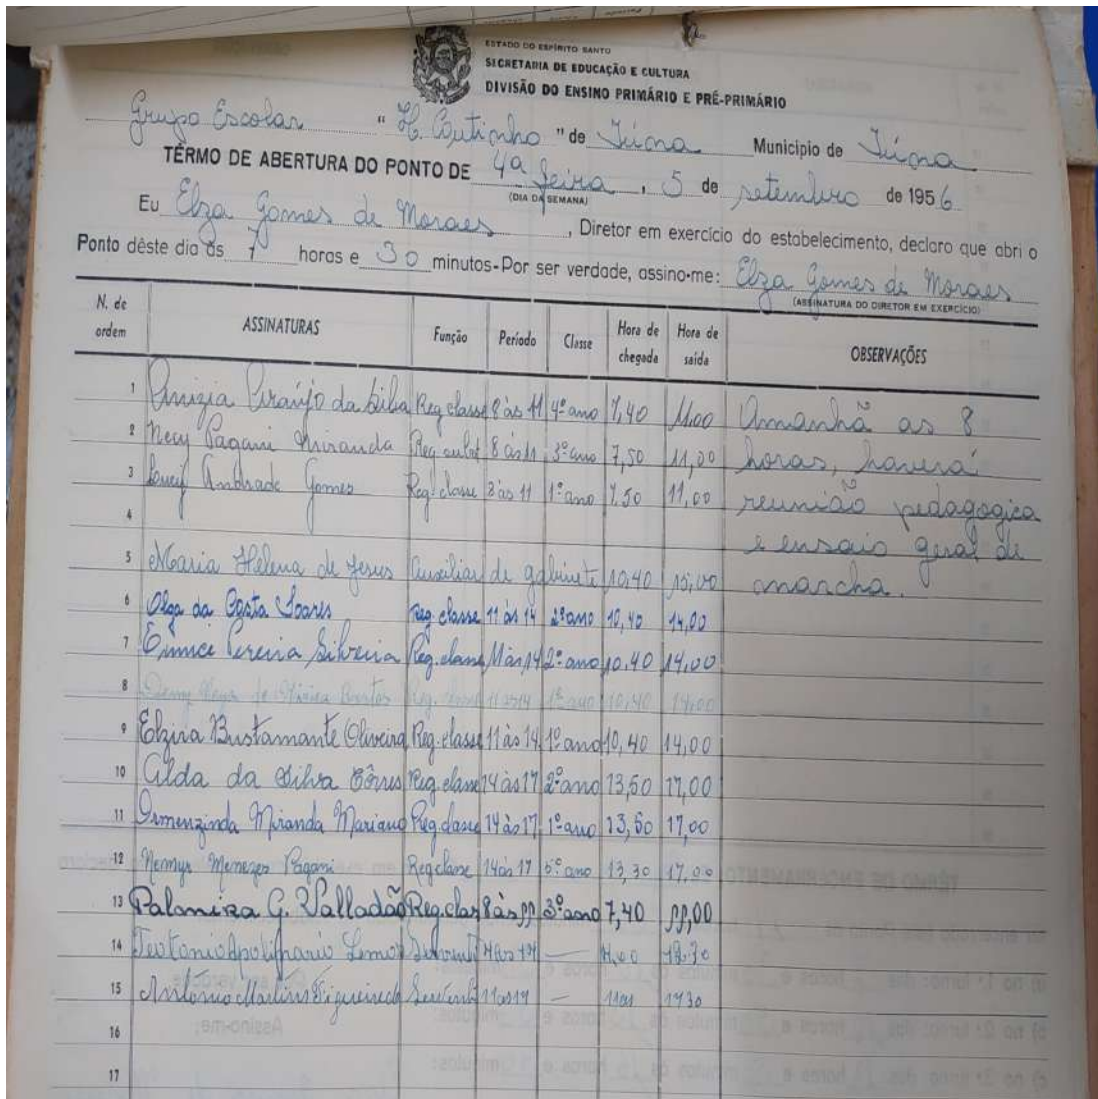 ESTADO DO ESPÍRITO SANTO
SECRETARIA DE EDUCAÇÃO E CULTURA
DIVISÃO DO ENSINO PRIMÁRIO E PRÉ-PRIMÁRIO
Grupo Escolar "H. Coutinho" de Iúna Municipio de Iúna
TÊRMO DE ABERTURA DO PONTO DE 4ª feira, 5 de setembro de 1956
(DIA DA SEMANA)
Eu Elza Gomes de Moraes, Diretor em exercício do estabelecimento, declaro que abri o
Ponto dêste dia às 7 horas e 30 minutos-Por ser verdade, assino-me: Elza Gomes de Moraes
(ASSINATURA DO DIRETOR EM EXERCÍCIO)
N. de ordem ASSINATURAS Função Período Classe Hora de chegada Hora de saída OBSERVAÇÕES
1 Anizia Araújo da Silva Reg classe 8 às 11 4º ano 7,40 11,00 Amanhã as 8
2 Necy Pagani Miranda Reg 8 às 11 3º ano 7,50 11,00 horas, haverá
3 Andrade Gomes Reg. classe 8 às 11 1º ano 7,50 11,00 reunião pedagogica
4 e ensaio geral de
5 Maria Helena de Jesus auxiliar de gabinete 10,40 15,00 marcha.
6 Olga da Costa Soares Reg classe 11 às 14 2º ano 10,40 14,00
7 Eunice Pereira Silveira Reg. classe 11 às 14 2º ano 10,40 14,00
8 Reg. classe 11 às 14 1º ano 10,40 14,00
9 Elzira Bustamante Oliveira Reg. classe 11 às 14 1º ano 10,40 14,00
10 Alda da Silva Tôrres Reg classe 14 às 17 2º ano 13,50 17,00
11 Ormenzinda Miranda Mariano Reg classe 14 às 17 1º ano 13,50 17,00
12 Nemys Menezes Pagani Reg classe 14 às 17 5º ano 13,30 17,00
13 Palmira G. Valladão Reg. clas 8 às 11 3º ano 7,40 11,00
14 Teotonio Apolinario Lemos Servente — 17,30
15 Antônio Martins Figueiredo Servente 11 às 17 — 11 às 17 30
16
17